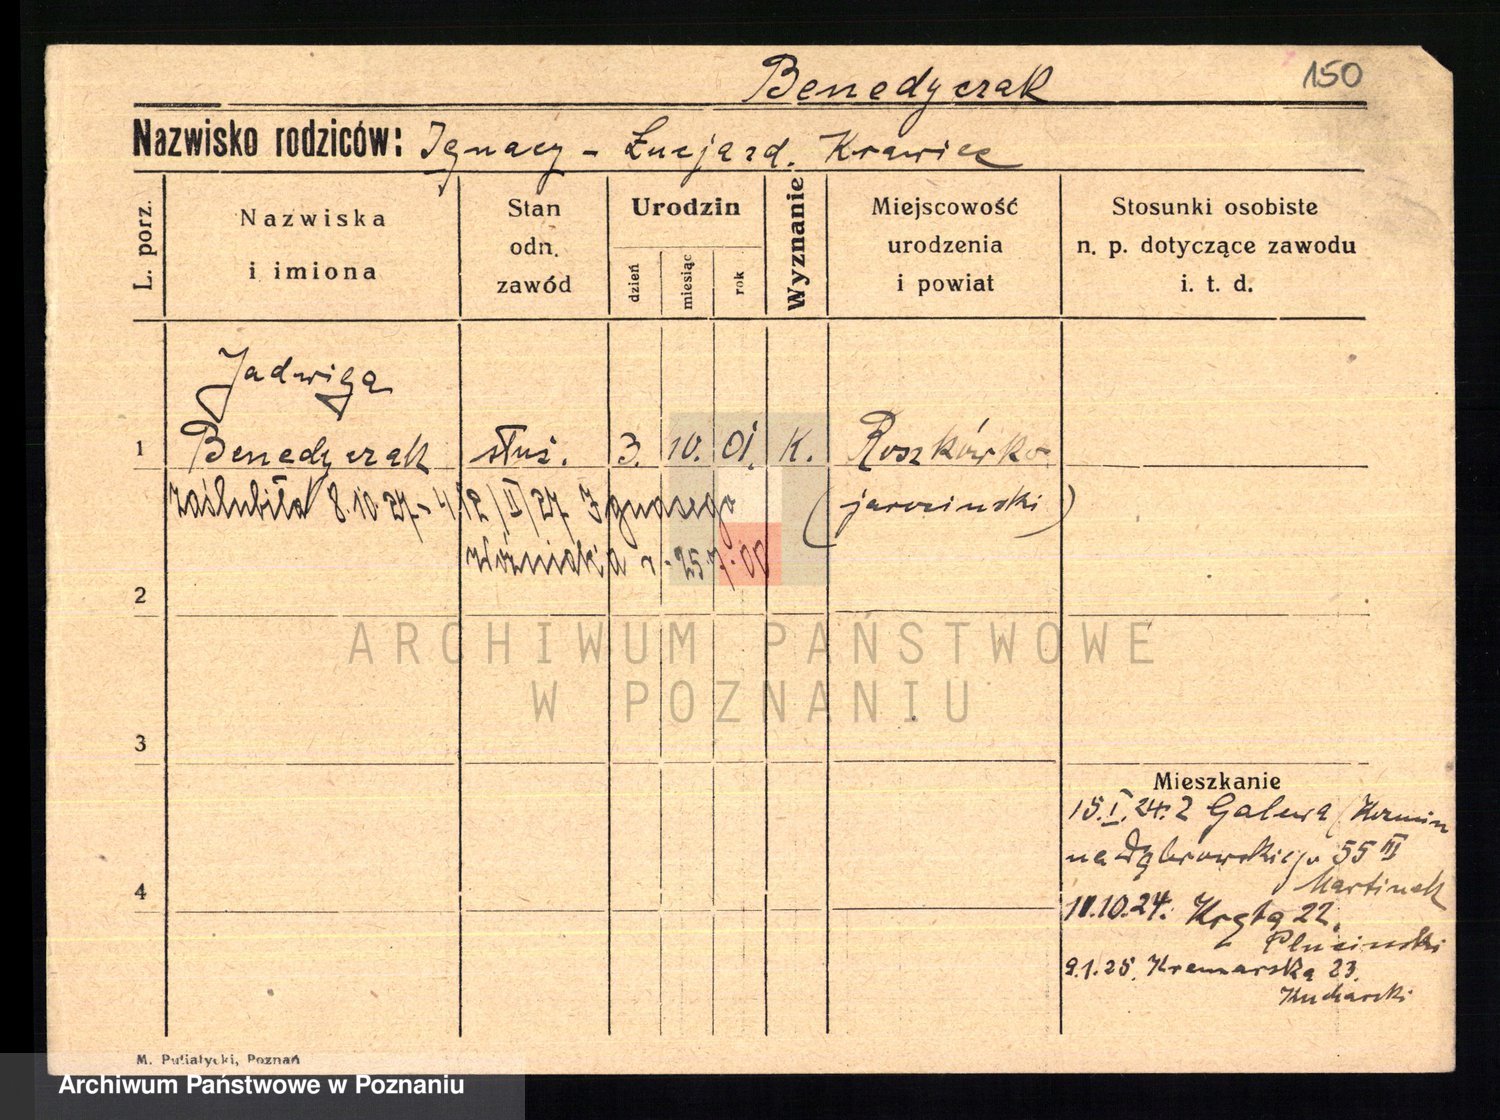 Benedyczak
150
Nazwisko rodziców: Ignacy - Łucja zd. Krawiec
L. porz.
Nazwiska i imiona
Stan odn. zawód
Urodzin
dzień miesiąc rok
Wyznanie
Miejscowość urodzenia i powiat
Stosunki osobiste n. p. dotyczące zawodu i. t. d.
Jadwiga
1 Benedyczak służ. 3. 10. 01. K. Roszkówko
zaślubiła 8.10.27 12/II/27 Ignacego (jarociński)
Woźniaka 25.7.00
2
ARCHIWUM PAŃSTWOWE
W POZNANIU
3
Mieszkanie
15.I.24. z Galewa
na Dąbrowskiego 55 III
4 Martinek
10.24. Kręta 22.
Pluciński
9.1.25. Kramarska 23.
Kucharski
M. Putiatycki, Poznań
Archiwum Państwowe w Poznaniu